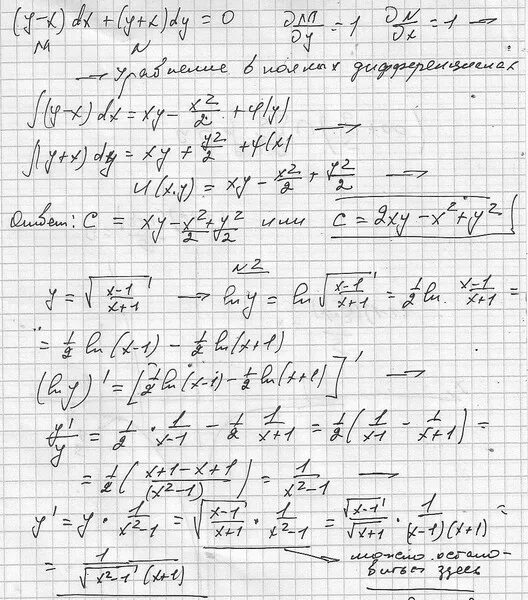 (y-x)dx + (y+x)dy = 0   ∂M/∂y = 1   ∂N/∂x = 1 →
M   N
→ уравнение в полных дифференциалах
∫(y-x)dx = xy - x²/2 + φ(y)
∫(y+x)dy = xy + y²/2 + ψ(x) →
u(x,y) = xy - x²/2 + y²/2 →
Ответ: C = xy - x²/2 + y²/2 или C = 2xy - x² + y²
N2
y = √((x-1)/(x+1)) → ln y = ln √((x-1)/(x+1)) = 1/2 ln (x-1)/(x+1) =
= 1/2 ln(x-1) - 1/2 ln(x+1)
(ln y)' = [1/2 ln(x-1) - 1/2 ln(x+1)]' →
y'/y = 1/2 · 1/(x-1) - 1/2 1/(x+1) = 1/2 (1/(x-1) - 1/(x+1)) =
= 1/2 ((x+1-x+1)/(x²-1)) = 1/(x²-1) →
y' = y · 1/(x²-1) = √((x-1)/(x+1)) · 1/(x²-1) = √(x-1)/√(x+1) · 1/((x-1)(x+1)) =
= 1/(√(x²-1) (x+1))
можно остано-
виться здесь